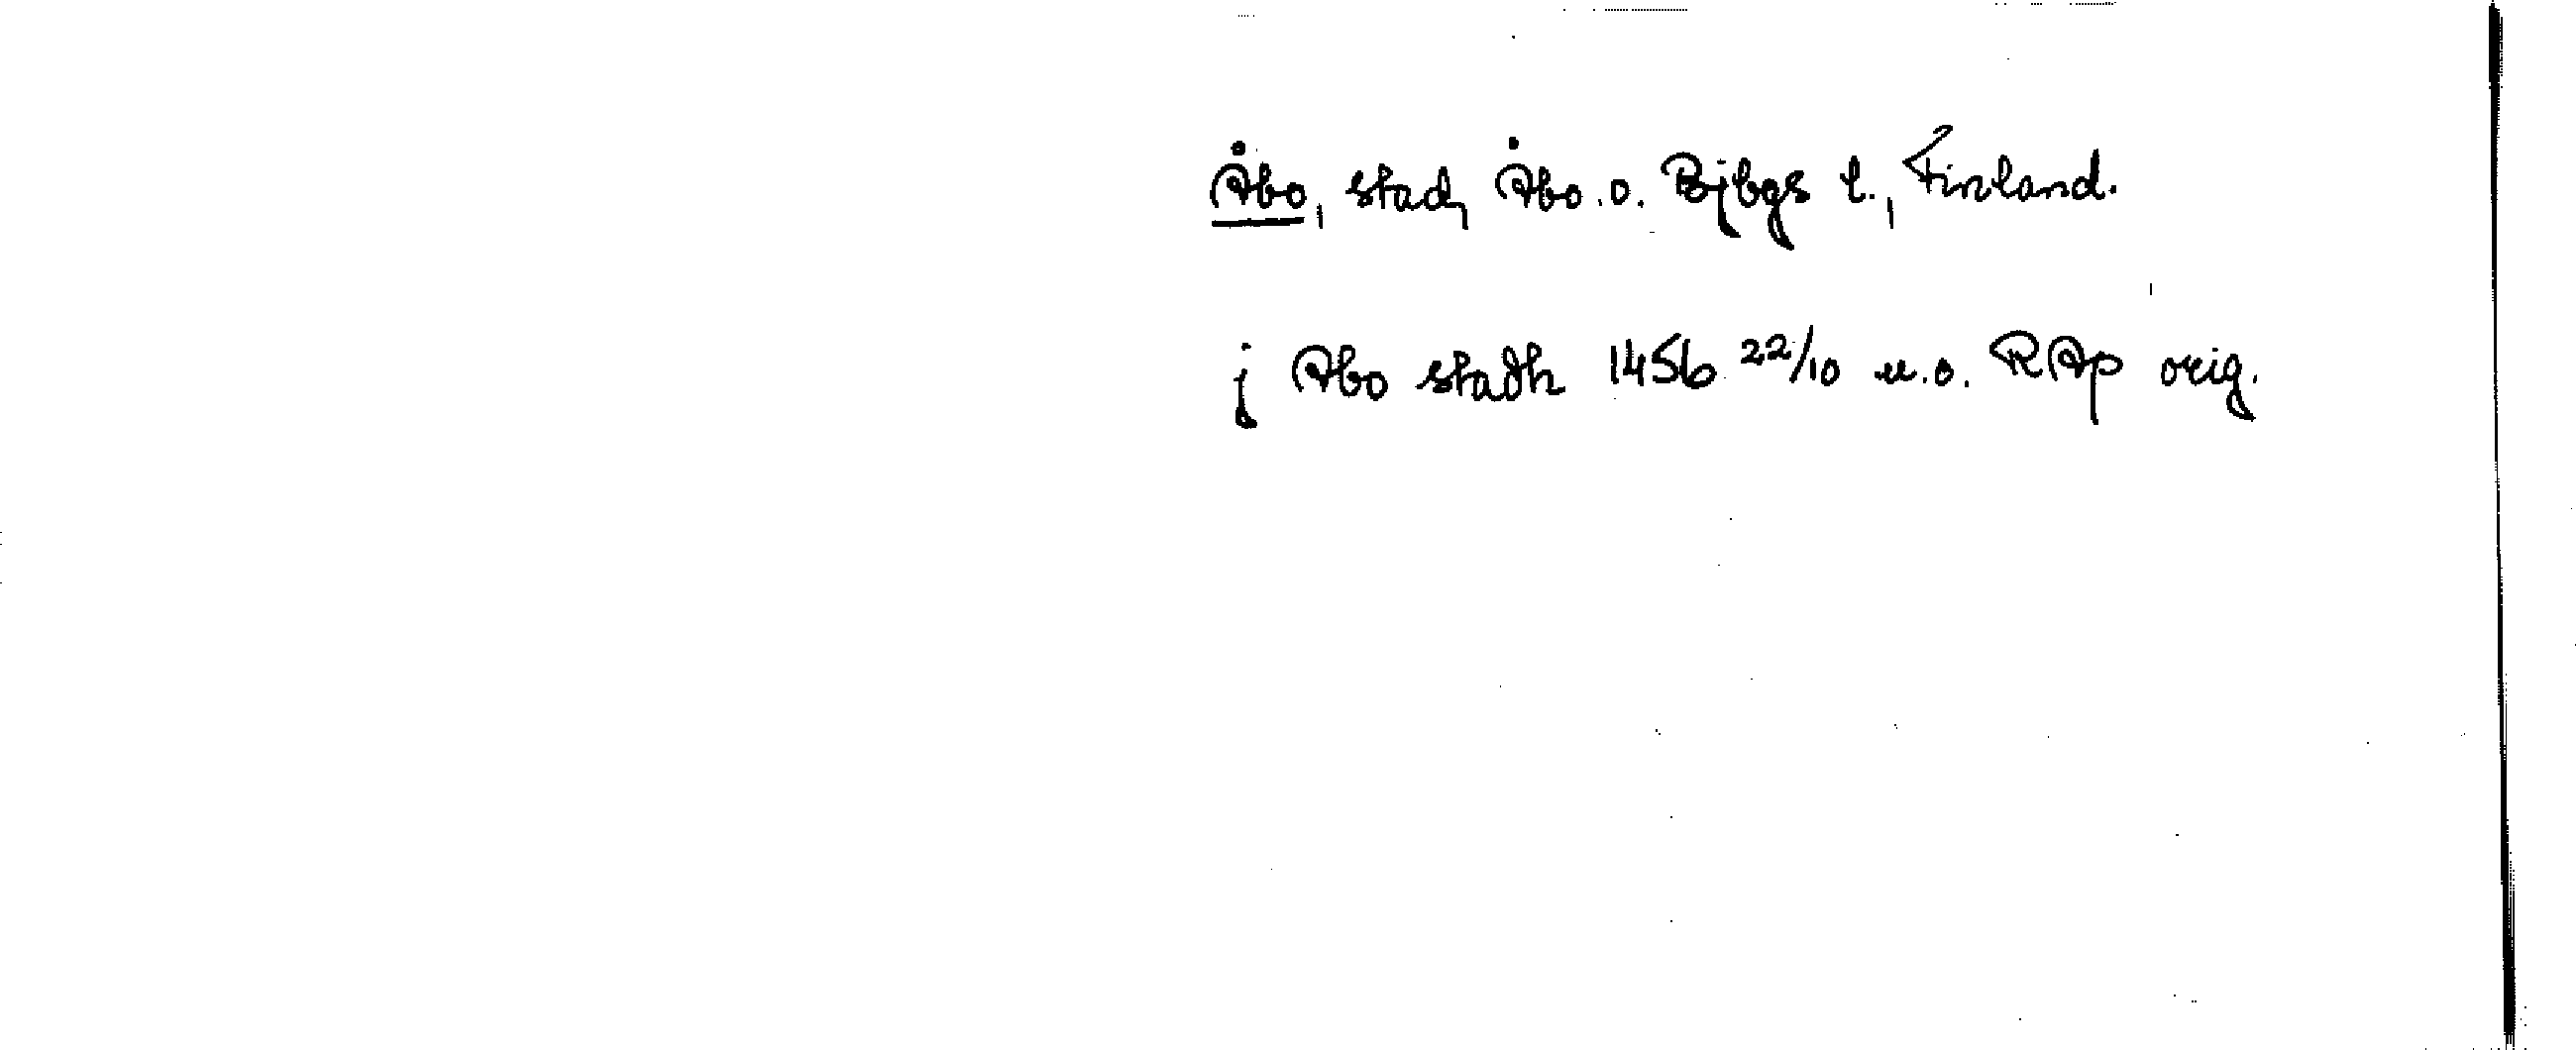 Åbo, stad, Åbo o. Bjbgs l., Finland.
j Abo stadh 1456 22/10 u.o. RAp orig.